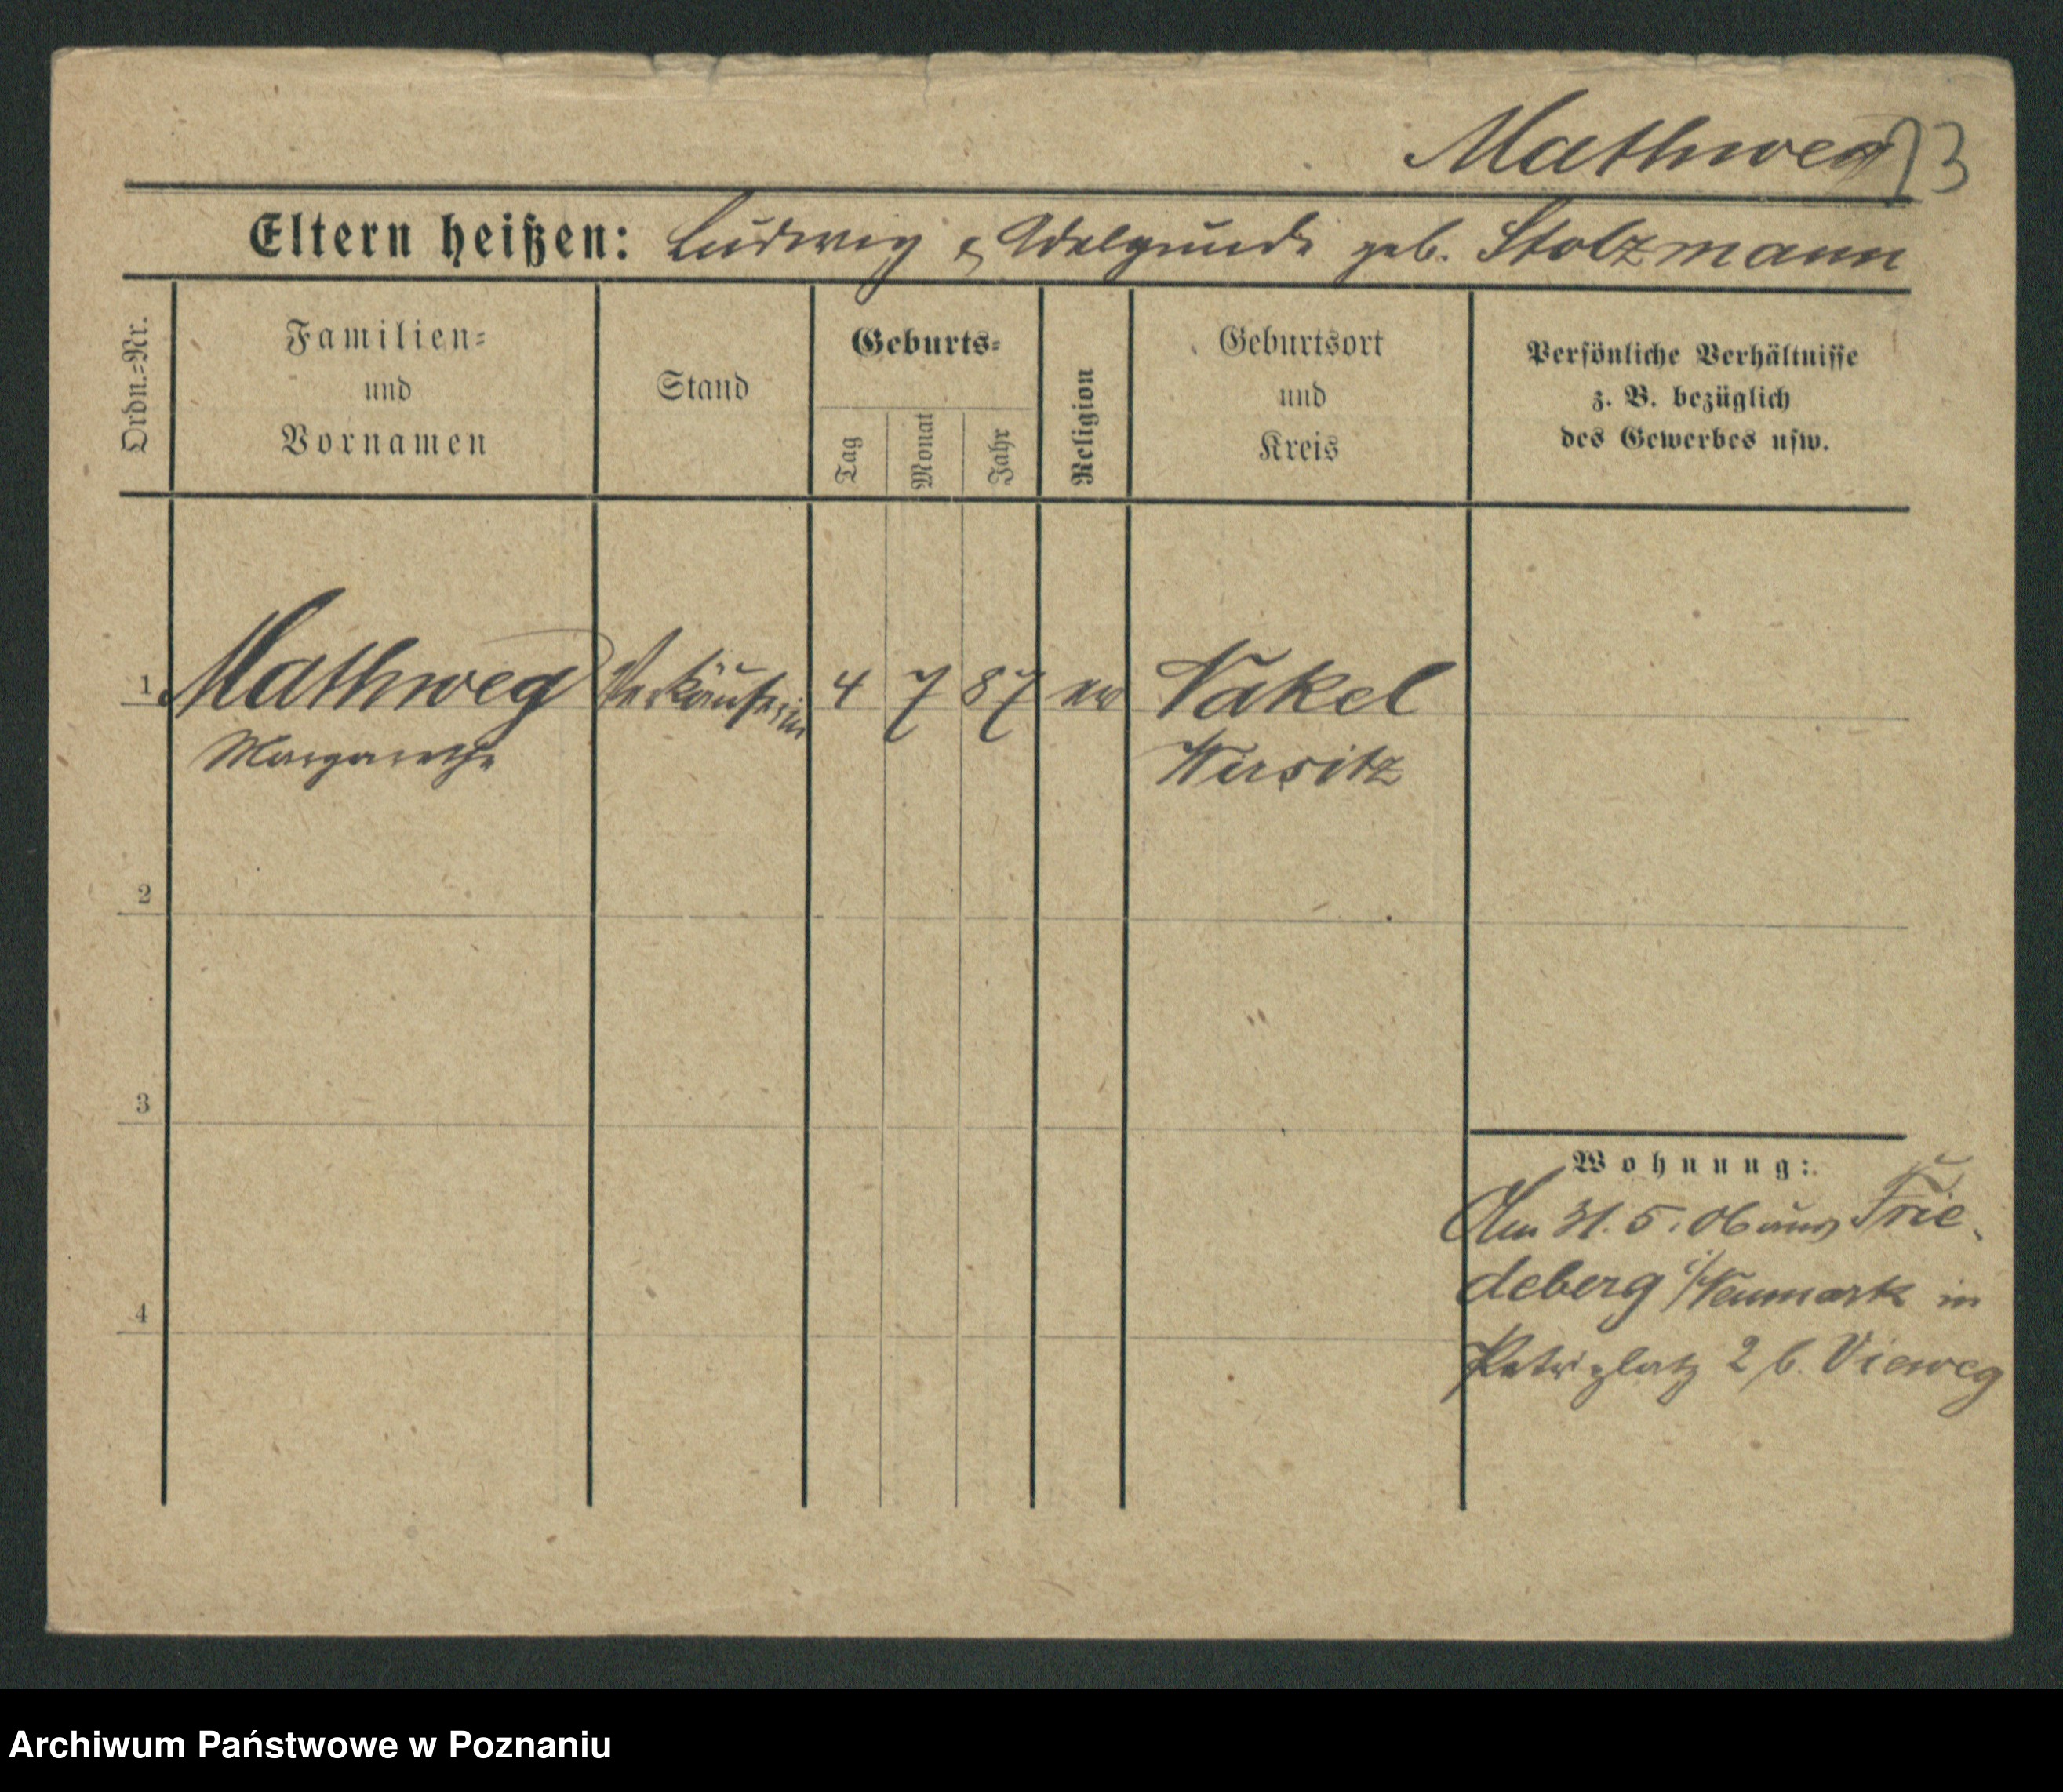 Mathweg
Eltern heißen: Ludwig & Adelgunde geb. Stolzmann
Ordn.-Nr.
Familien-
und
Vornamen
Stand
Geburts-
Tag
Monat
Jahr
Religion
Geburtsort
und
Kreis
Persönliche Verhältnisse
z. B. bezüglich
des Gewerbes usw.
1 Mathweg Verkäuferin 4 7 87 ev Nakel
Margarethe Wirsitz
2
3
4
Wohnung:
Am 31. 5. 06 aus Frie-
deberg i/Neumark in
Petriplatz 2 b. Vieweg
Archiwum Państwowe w Poznaniu